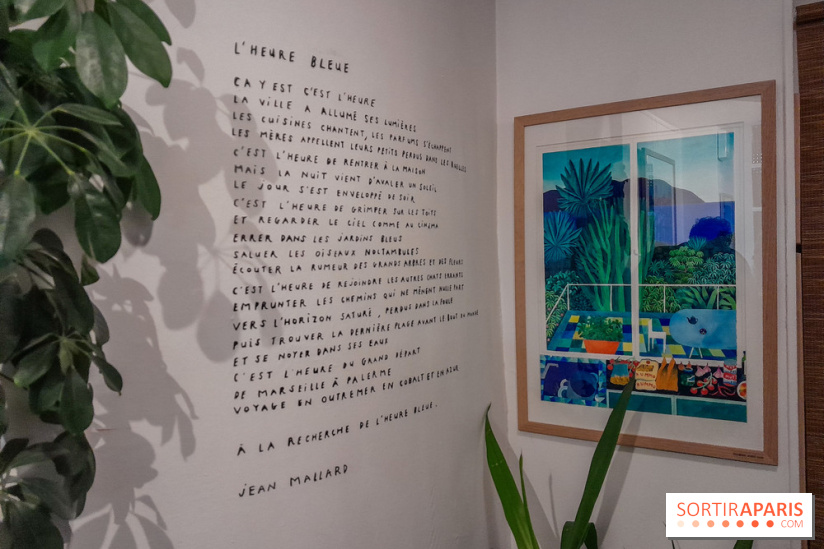 L'HEURE BLEUE
ÇA Y EST C'EST L'HEURE
LA VILLE A ALLUMÉ SES LUMIÈRES
LES CUISINES CHANTENT, LES PARFUMS S'ÉCHAPPENT
LES MÈRES APPELLENT LEURS PETITS PERDUS DANS LES RUELLES
C'EST L'HEURE DE RENTRER À LA MAISON
MAIS LA NUIT VIENT D'AVALER UN SOLEIL
LE JOUR S'EST ENVELOPPÉ DE SOIR
C'EST L'HEURE DE GRIMPER SUR LES TOITS
ET REGARDER LE CIEL COMME AU CINÉMA
ERRER DANS LES JARDINS BLEUS
SALUER LES OISEAUX NOCTAMBULES
ÉCOUTER LA RUMEUR DES GRANDS ARBRES ET DES FLEURS
C'EST L'HEURE DE REJOINDRE LES AUTRES CHATS ERRANTS
EMPRUNTER LES CHEMINS QUI NE MÈNENT NULLE PART
VERS L'HORIZON SATURÉ, PERDUS DANS LA FOULE
PUIS TROUVER LA DERNIÈRE PLAGE AVANT LE BOUT DU MONDE
ET SE NOYER DANS SES EAUX
C'EST L'HEURE DU GRAND DÉPART
DE MARSEILLE À PALERME
VOYAGE EN OUTREMER EN COBALT ET EN AZUR
À LA RECHERCHE DE L'HEURE BLEUE.
JEAN MALLARD
SORTIRAPARIS
.COM